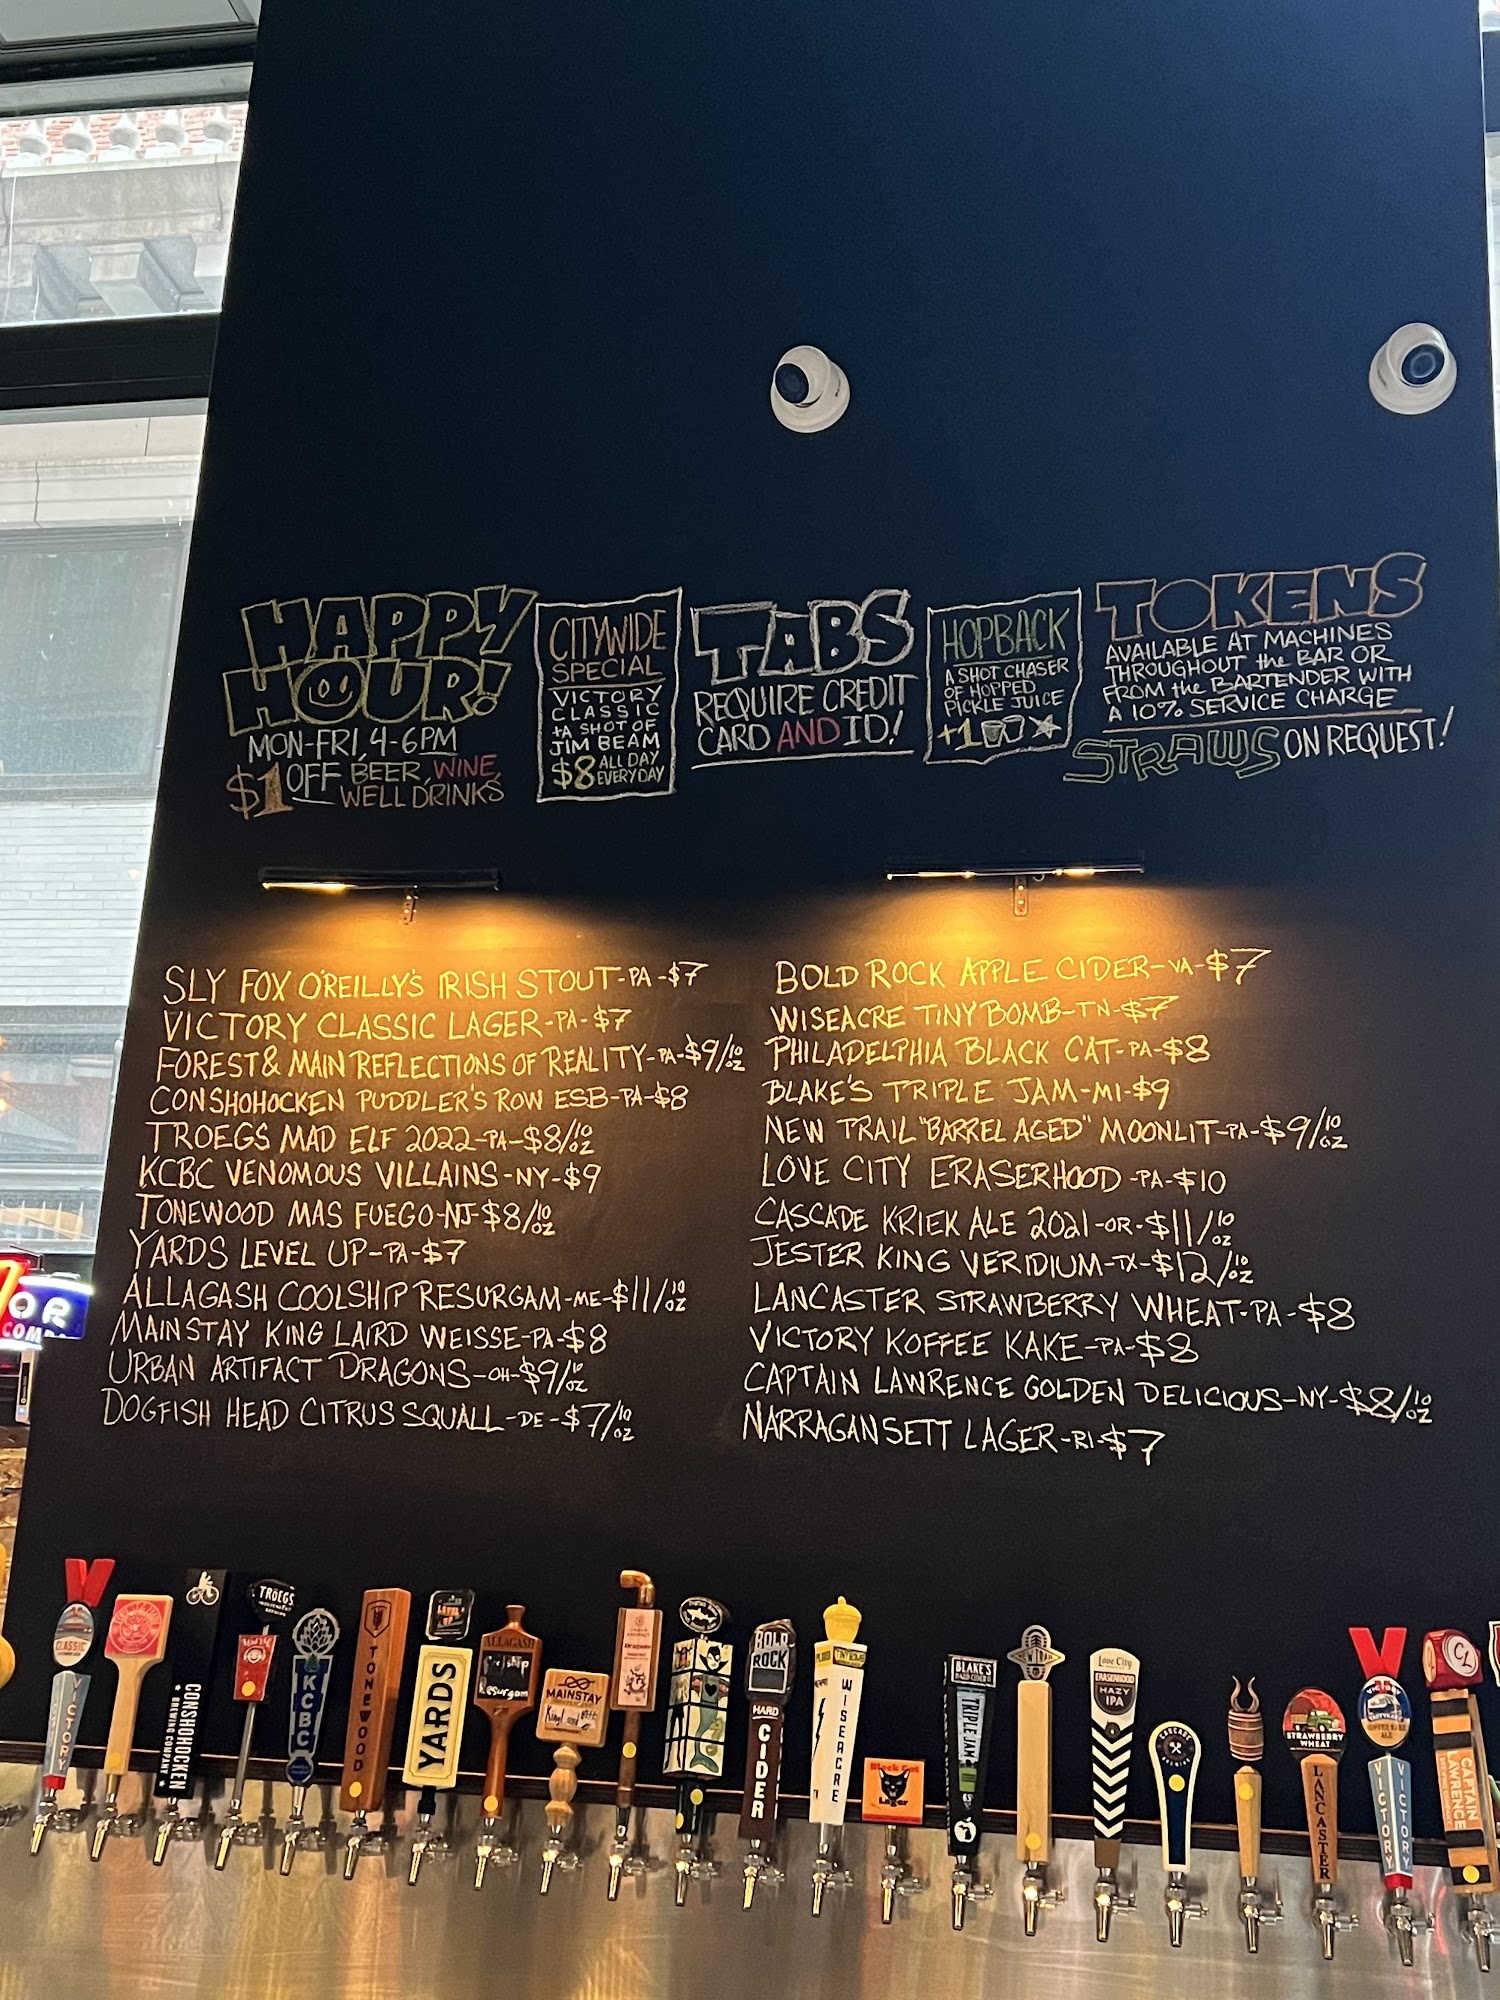 HAPPY
HOUR!
MON-FRI, 4-6PM
$1 OFF BEER, WINE,
WELL DRINKS
CITYWIDE
SPECIAL
VICTORY
CLASSIC
+A SHOT OF
JIM BEAM
$8 ALL DAY
EVERYDAY
TABS
REQUIRE CREDIT
CARD AND ID!
HOPBACK
A SHOT CHASER
OF HOPPED
PICKLE JUICE
+1
TOKENS
AVAILABLE AT MACHINES
THROUGHOUT the BAR OR
FROM the BARTENDER WITH
A 10% SERVICE CHARGE
STRAWS ON REQUEST!
SLY FOX O'REILLY'S IRISH STOUT-PA-$7
VICTORY CLASSIC LAGER-PA-$7
FOREST & MAIN REFLECTIONS OF REALITY-PA-$9/10 OZ
CONSHOHOCKEN PUDDLER'S ROW ESB-PA-$8
TROEGS MAD ELF 2022-PA-$8/10 OZ
KCBC VENOMOUS VILLAINS-NY-$9
TONEWOOD MAS FUEGO-NJ-$8/10 OZ
YARDS LEVEL UP-PA-$7
ALLAGASH COOLSHIP RESURGAM-ME-$11/10 OZ
MAINSTAY KING LAIRD WEISSE-PA-$8
URBAN ARTIFACT DRAGONS-OH-$9/10 OZ
DOGFISH HEAD CITRUS SQUALL-DE-$7/10 OZ
BOLD ROCK APPLE CIDER-VA-$7
WISEACRE TINY BOMB-TN-$7
PHILADELPHIA BLACK CAT-PA-$8
BLAKE'S TRIPLE JAM-MI-$9
NEW TRAIL "BARREL AGED" MOONLIT-PA-$9/10 OZ
LOVE CITY ERASERHOOD-PA-$10
CASCADE KRIEK ALE 2021-OR-$11/10 OZ
JESTER KING VERIDIUM-TX-$12/10 OZ
LANCASTER STRAWBERRY WHEAT-PA-$8
VICTORY KOFFEE KAKE-PA-$8
CAPTAIN LAWRENCE GOLDEN DELICIOUS-NY-$8/10 OZ
NARRAGANSETT LAGER-RI-$7
OR
COMP
CLASSIC
VICTORY
CONSHOHOCKEN
BREWING COMPANY
TRÖEGS
INDEPENDENT
BREWING
KCBC
TONEWOOD
LEVEL UP
YARDS
ALLAGASH
Coolship
Resurgam
MAINSTAY
King Laird
BOLD
ROCK
HARD
CIDER
TINY BOMB
WISEACRE
Black Cat
Lager
BLAKE'S
HARD CIDER CO
TRIPLE JAM
NEW TRAIL
Love City
ERASERHOOD
HAZY
IPA
CASCADE
STRAWBERRY
WHEAT
LANCASTER
VICTORY
COFFEE CAKE
ALE
VICTORY
VICTORY
CL
CAPTAIN
LAWRENCE